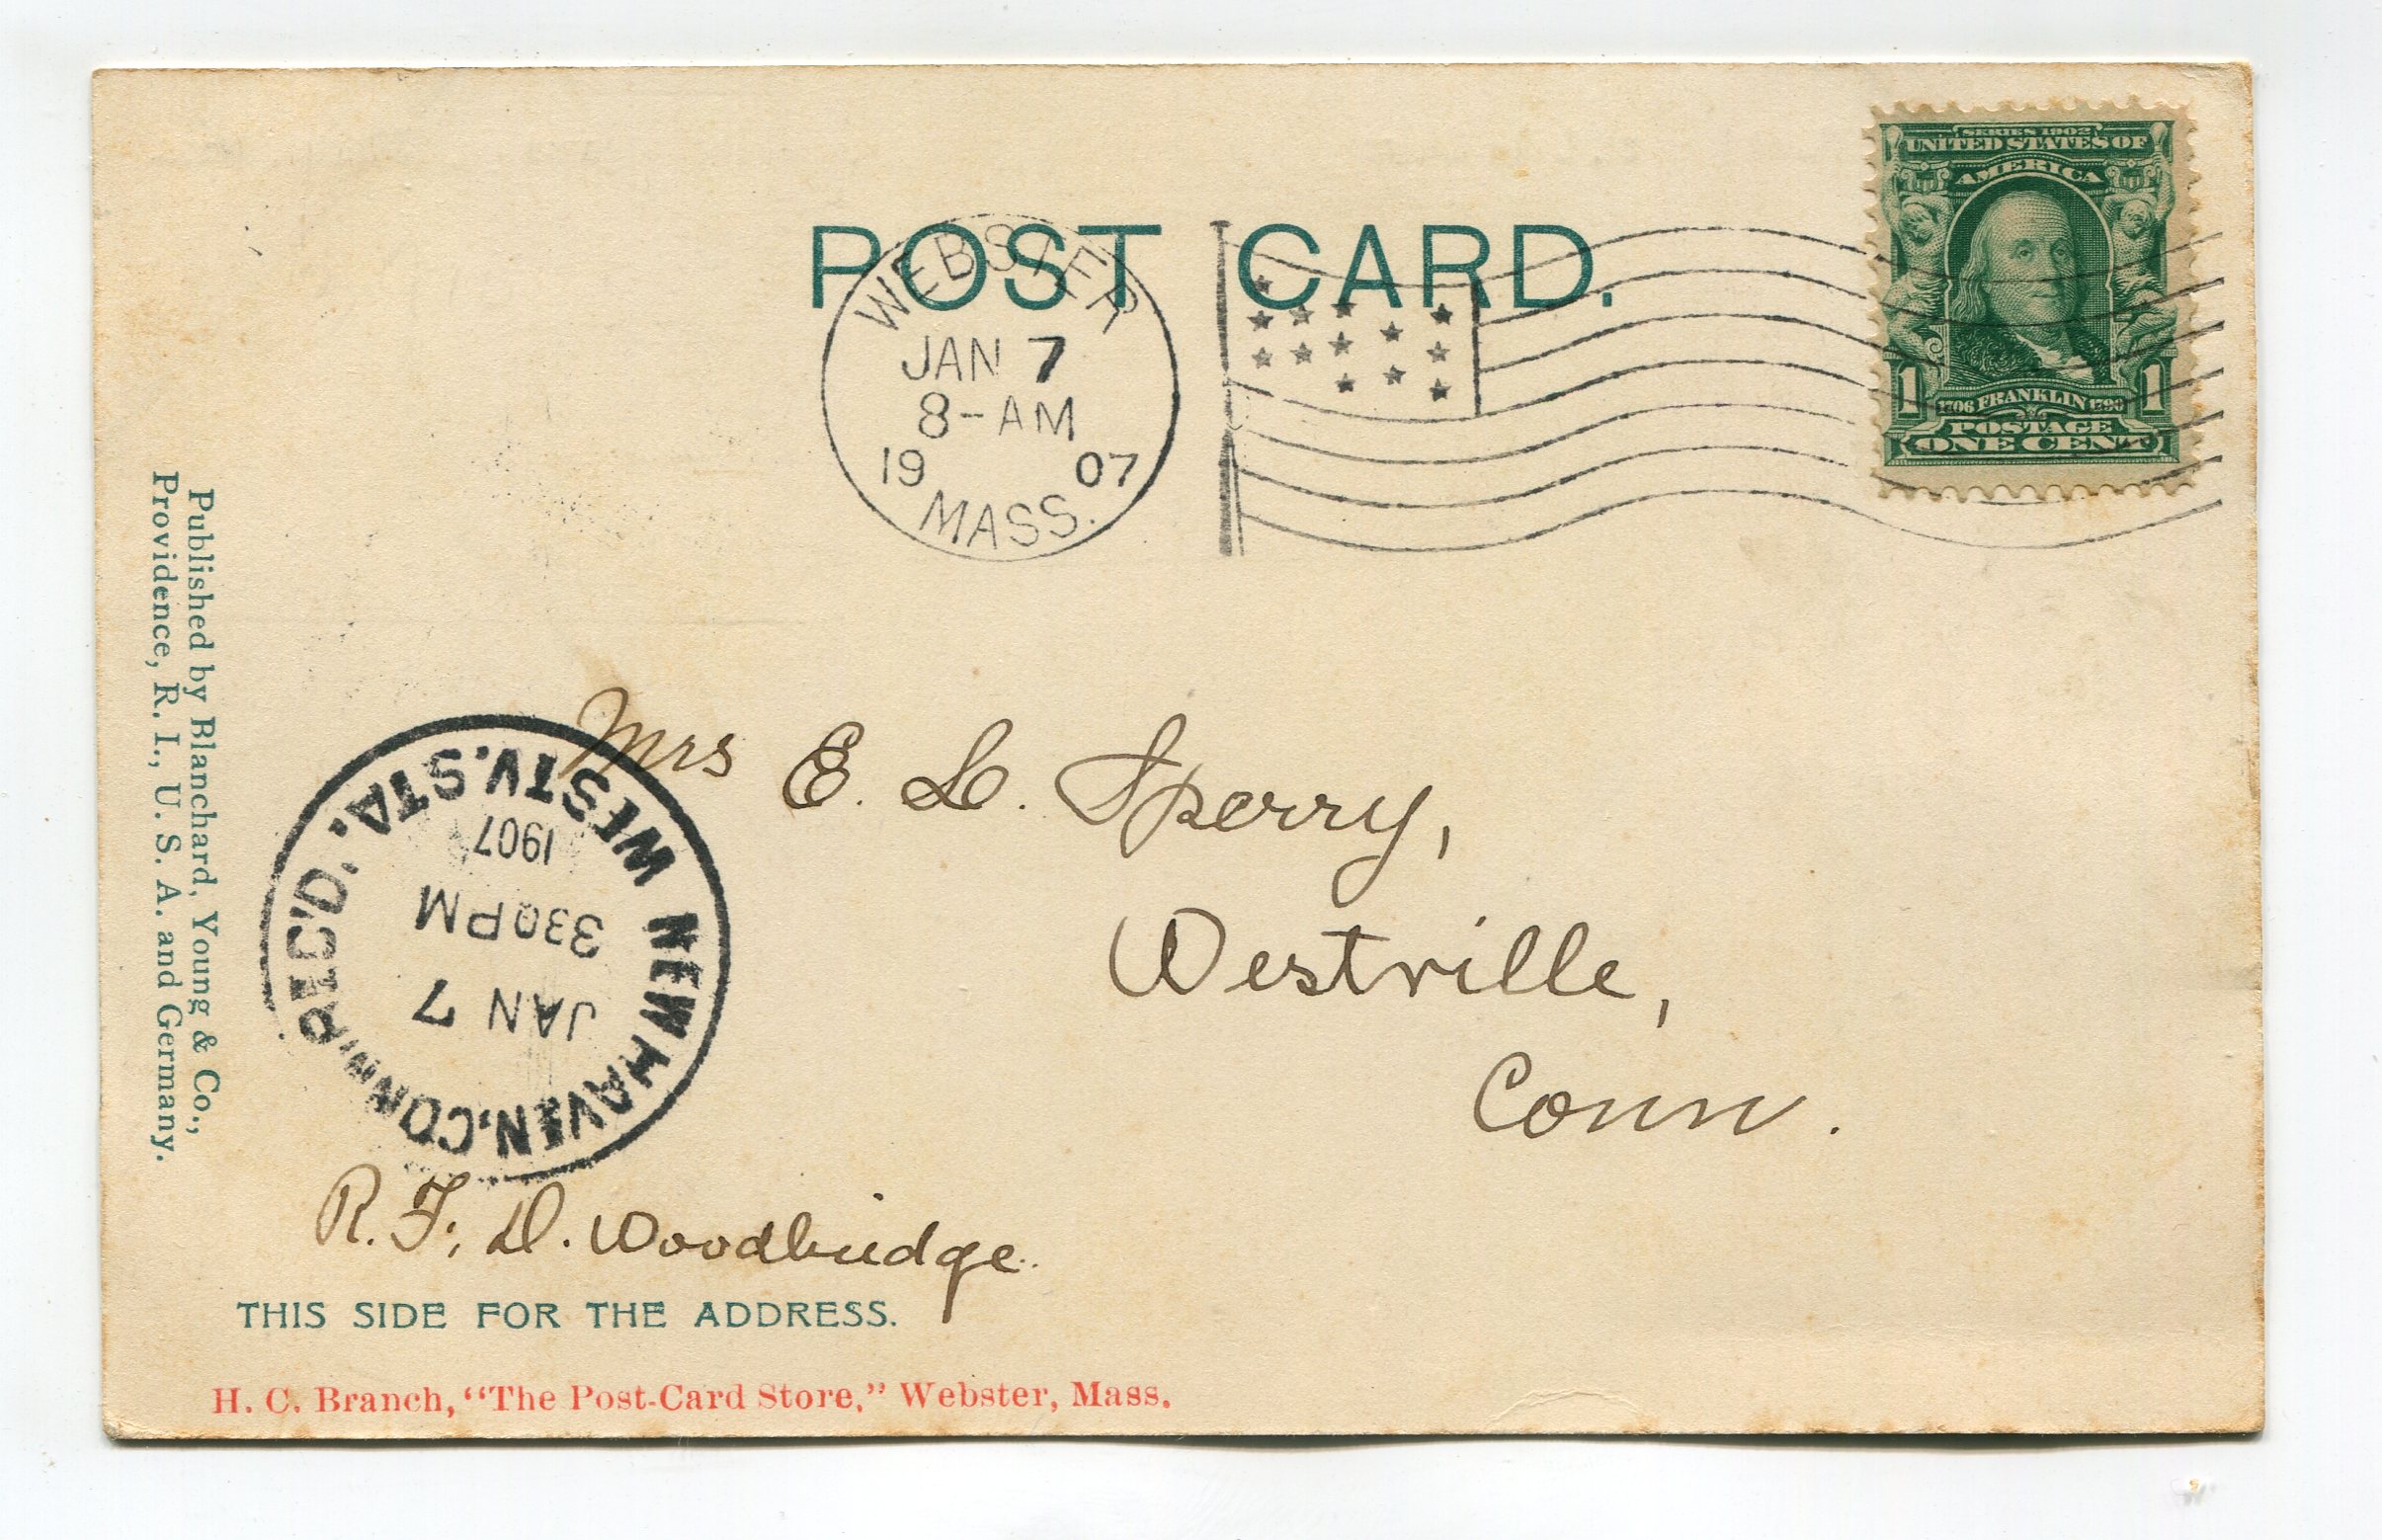 POST CARD.
WEBSTER
JAN 7
8-AM
19 07
MASS.
SERIES 1902
UNITED STATES OF
AMERICA
1 1
1706 FRANKLIN 1790
POSTAGE
ONE CENT
Published by Blanchard, Young & Co.,
Providence, R. I., U. S. A. and Germany.
Mrs E. L. Sperry,
Westville,
Conn.
NEW HAVEN, CONN.
WESTV. STA.
REC'D.
JAN 7
330PM
1907
R. F. D. Woodbridge.
THIS SIDE FOR THE ADDRESS.
H. C. Branch, “The Post-Card Store,” Webster, Mass.